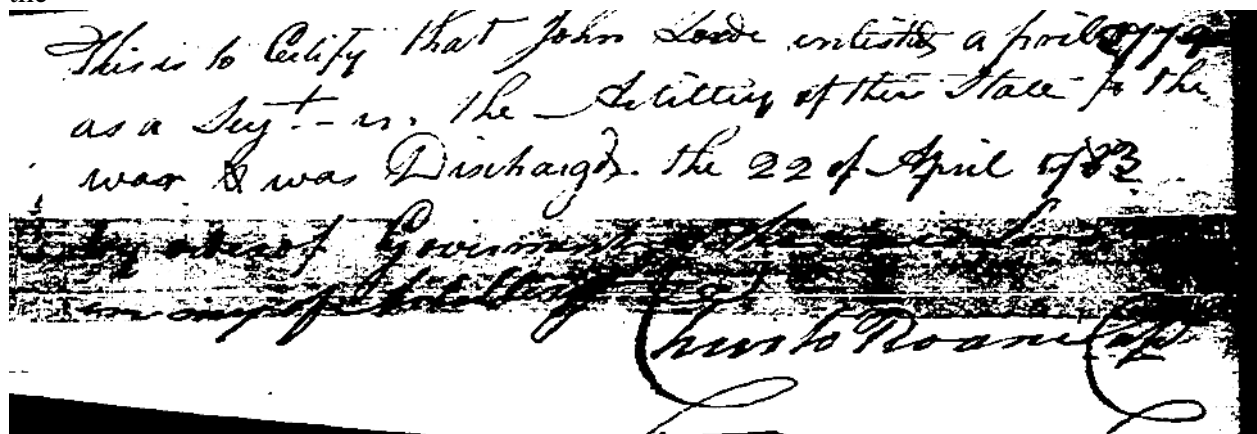 the
This is to Certify that John Lorde entisted april 1779
as a Sejt. – in. the Artillery of this State for the
war & was Discharged. the 22 of April 1783
by order of Goverment
Christo Roane Capt